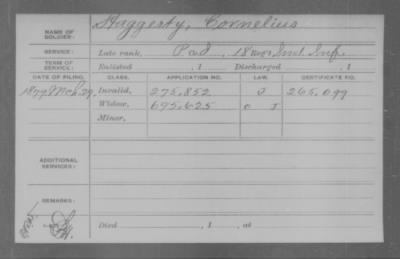 NAME OF SOLDIER: Haggerty, Cornelius
SERVICE: Late rank, Pvt, 18 Reg't Inf.
TERM OF SERVICE: Enlisted , 1 Discharged , 1
DATE OF FILING. CLASS. APPLICATION NO. LAW. CERTIFICATE NO.
1879 Mch. 29, Invalid, 275,852 J 265,099
Widow, 675,625 O J
Minor,
ADDITIONAL SERVICES:
REMARKS:
Died , 1 , at